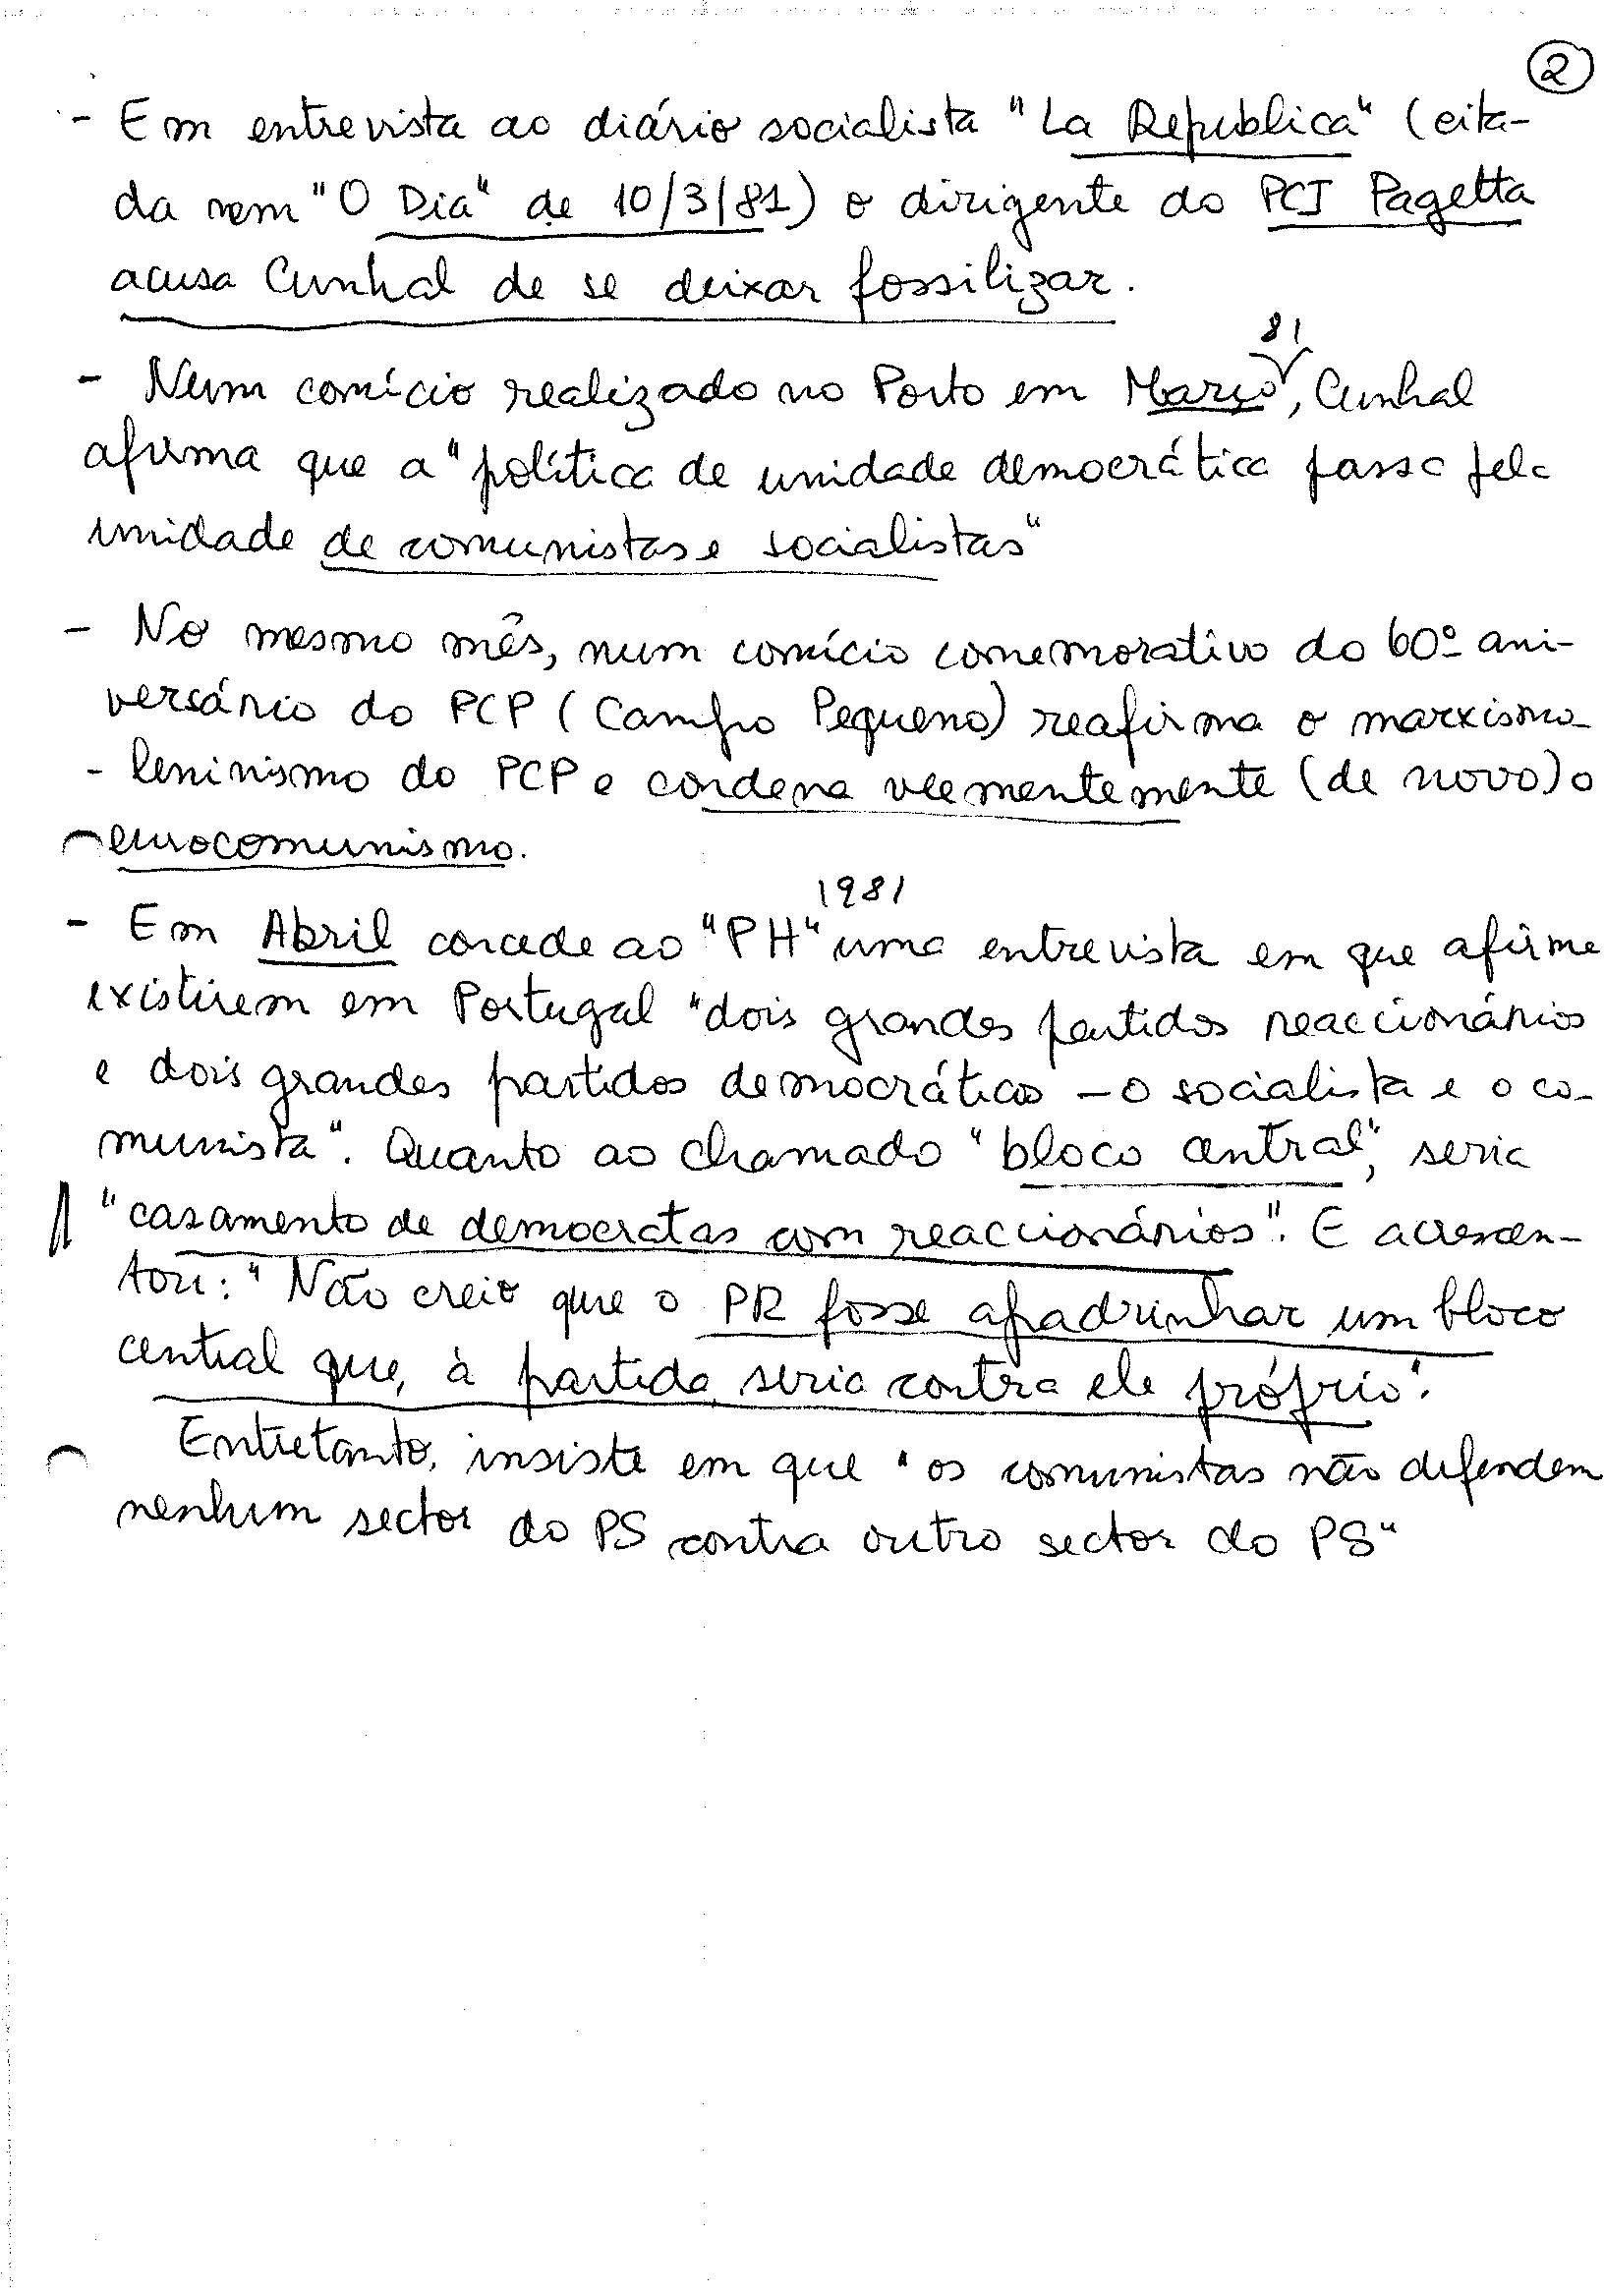 2
- Em entrevista ao diário socialista "La Republica" (cita-
da nem "O Dia" de 10/3/81) o dirigente do PCI Pagetta
acusa Cunhal de se deixar fossilizar.
81
- Num comício realizado no Porto em Março, Cunhal
afirma que a "política de unidade democrática passa pela
unidade de comunistas e socialistas"
- No mesmo mês, num comício comemorativo do 60º ani-
versário do PCP (Campo Pequeno) reafirma o marxismo-
- leninismo do PCP e condena veementemente (de novo) o
eurocomunismo.
1981
- Em Abril concede ao "PH" uma entrevista em que afirma
existirem em Portugal "dois grandes partidos reaccionários
e dois grandes partidos democráticos - o socialista e o co-
munista". Quanto ao chamado "bloco central", seria
"casamento de democratas com reaccionários". E acrescen-
tou: "Não creio que o PR fosse apadrinhar um bloco
central que, à partida, seria contra ele próprio".
Entretanto, insiste em que "os comunistas não defendem
nenhum sector do PS contra outro sector do PS"